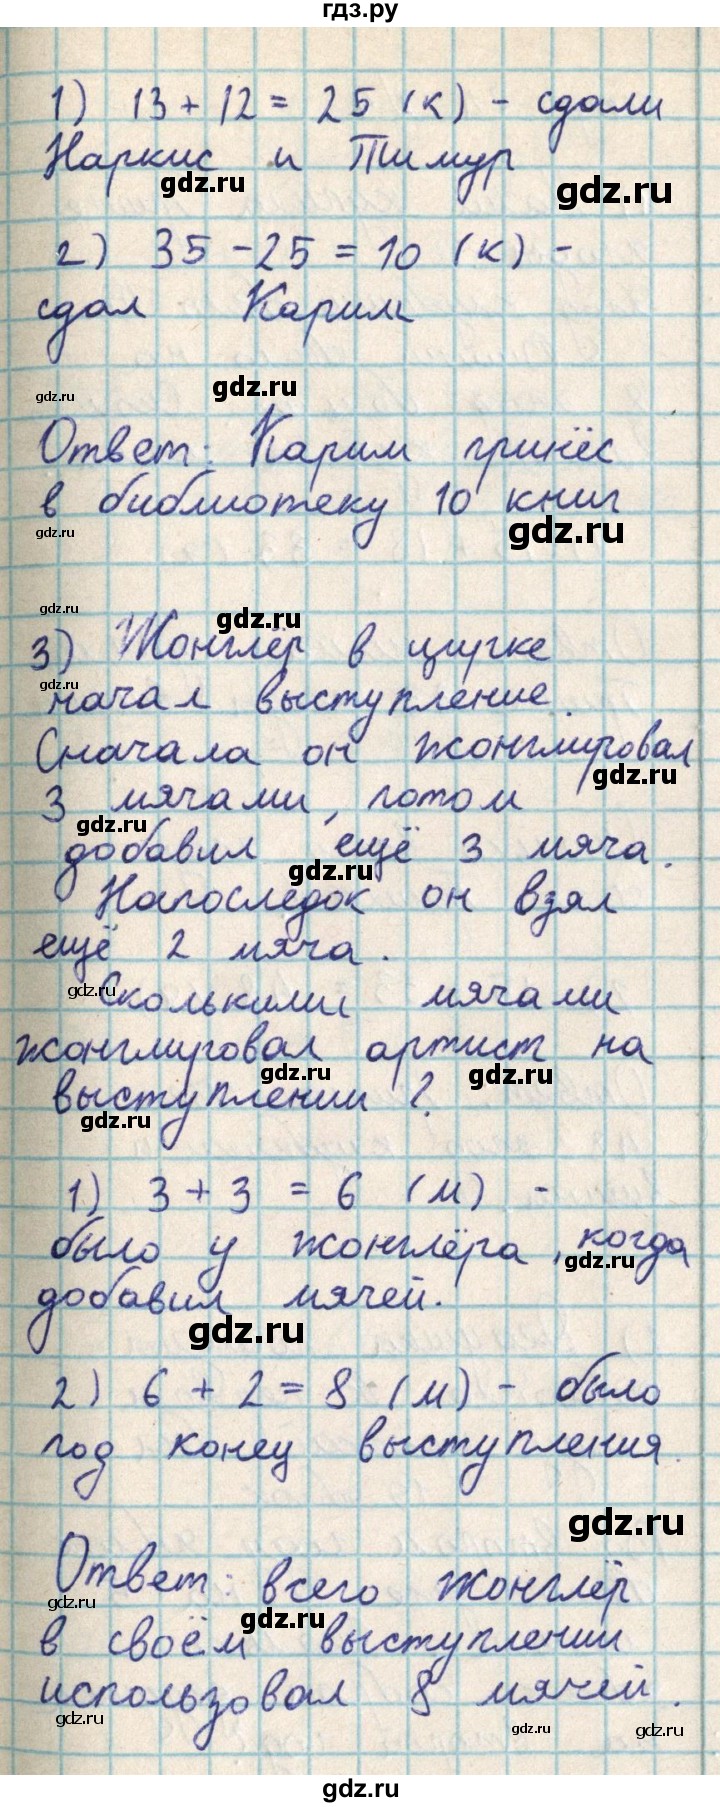 гдз.ру
1) 13 + 12 = 25 (к) - сдали
Наркис и Тимур
gdz.ru
gdz.ru
2) 35 - 25 = 10 (к) -
сдал Карим
gdz.ru
gdz.ru
Ответ: Карим принёс
в библиотеку 10 книг
gdz.ru
gdz.ru
gdz.ru
gdz.ru
3) Жонглёр в цирке
gdz.ru
начал выступление.
Сначала он жонглировал
gdz.ru
3 мячами, потом
gdz.ru
добавил ещё 3 мяча.
gdz.ru
Напоследок он взял
ещё 2 мяча.
gdz.ru
Сколькими мячами
жонглировал артист на
gdz.ru
gdz.ru
выступлении?
gdz.ru
1) 3 + 3 = 6 (м) -
было у жонглёра, когда
gdz.ru
добавил мячей.
gdz.ru
2) 6 + 2 = 8 (м) - было
под конец выступления.
gdz.ru
Ответ: всего жонглёр
gdz.ru
gdz.ru
в своём выступлении
использовал 8 мячей.
gdz.ru
gdz.ru
gdz.ru
gdz.ru